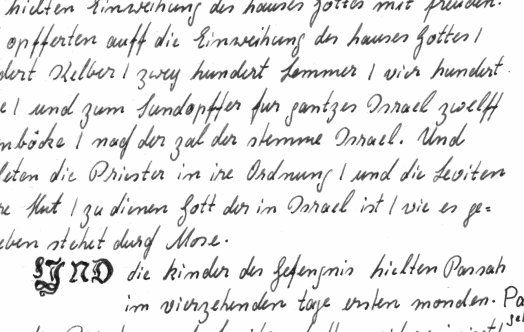 hielten Einweihung des hauses Gottes mit freuden.
opfferten auff die Einweihung des hauses Gottes /
dert Kelber / zwey hundert Lemmer / vier hundert
e / und zum Sundopffer fur gantzes Israel zwelff
nböcke / nach der zal der stemme Israel. Und
leten die Priester in ire Ordnung / und die Leviten
re Hut / zu dienen Gott der in Israel ist / wie es ge=
eben stehet durch Mose.
UND die kinder des Gefengnis hielten Passah
im vierzehenden tage ersten monden. Pa